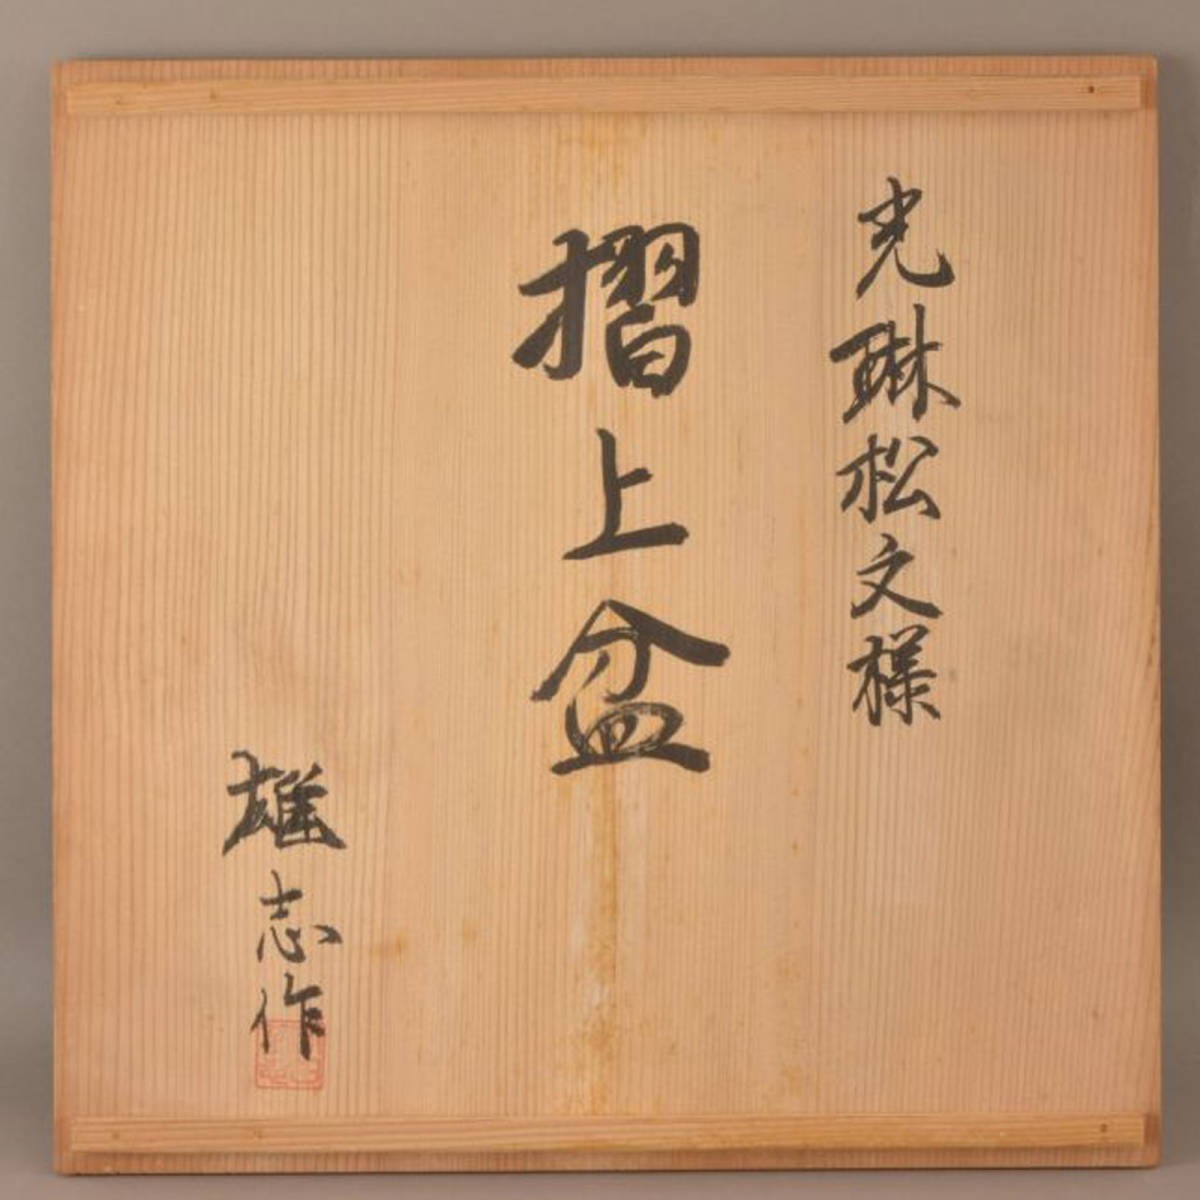 光琳松文様
摺上盆
雄志作